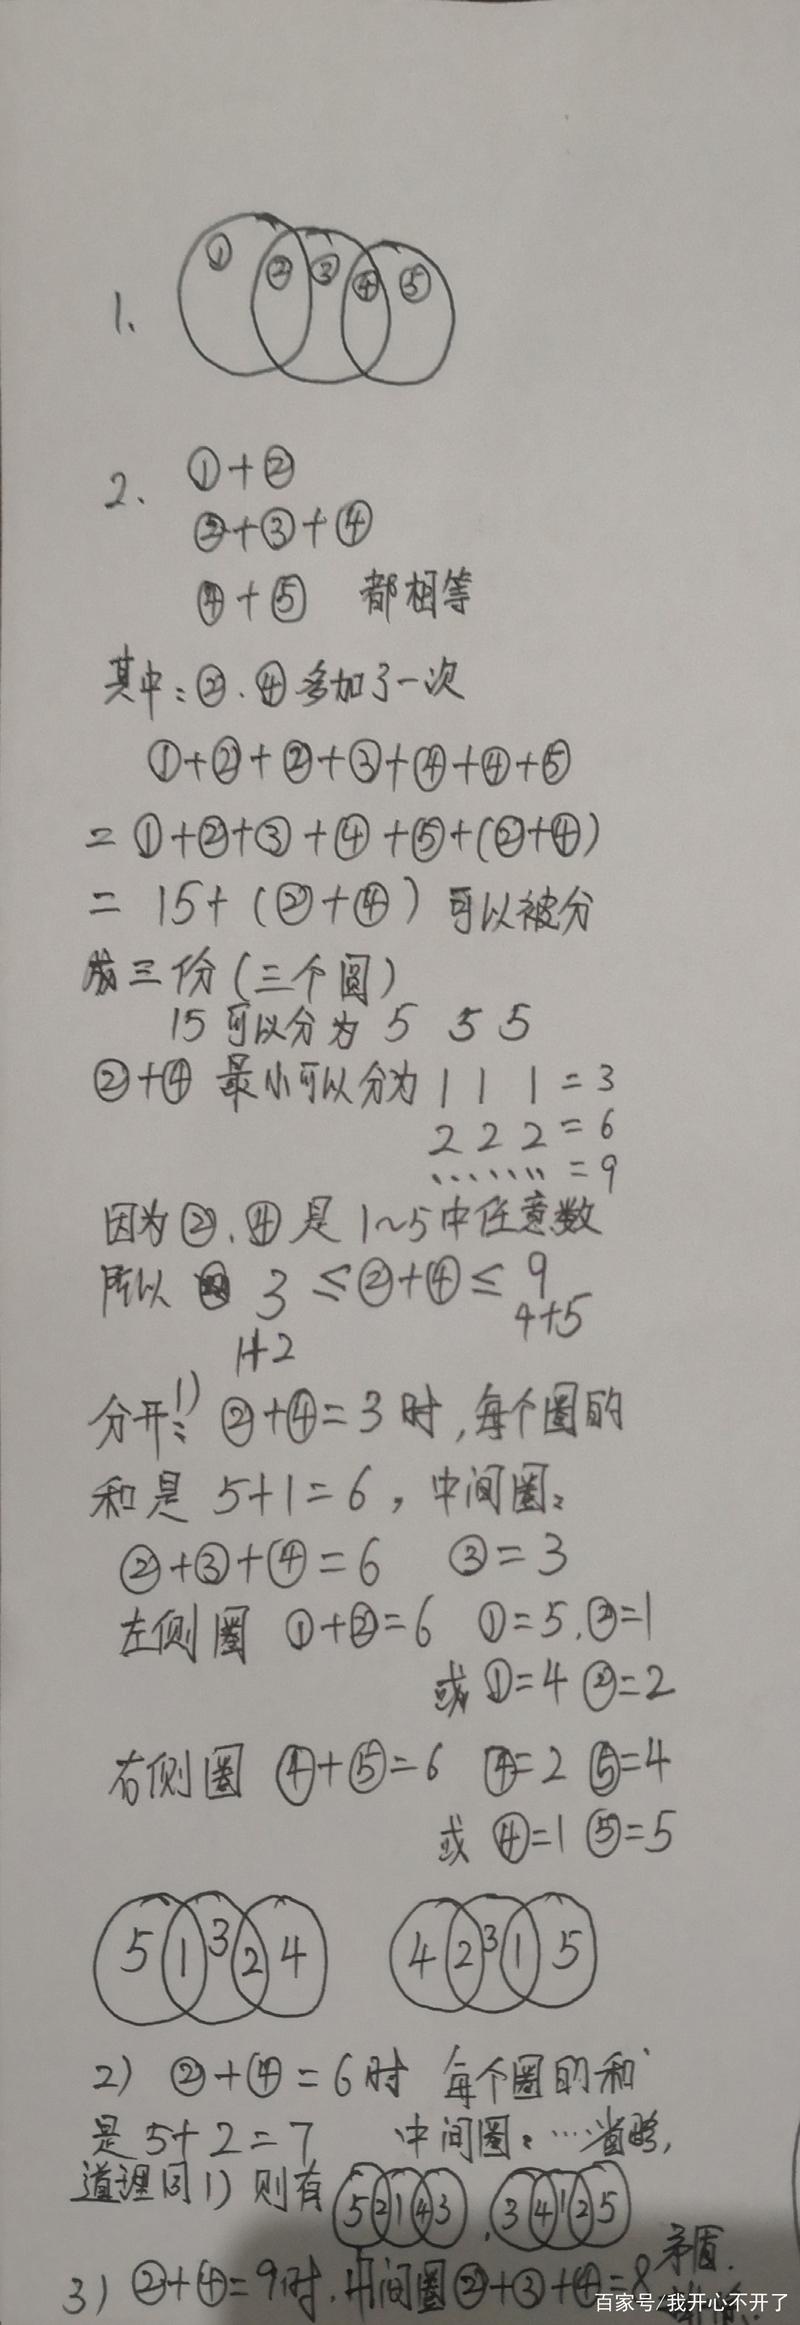 1、
① ② ③ ④ ⑤
2、 ①+②
②+③+④
④+⑤ 都相等
其中：②、④多加了一次
①+②+②+③+④+④+⑤
= ①+②+③+④+⑤+(②+④)
= 15+(②+④) 可以被分
成三份(三个圆)
15可以分为 5 5 5
②+④ 最小可以分为 1 1 1 = 3
2 2 2 = 6
…… = 9
因为②、④是1~5中任意数
所以 3 ≤②+④≤ 9
1+2 4+5
分开: 1) ②+④=3时,每个圈的
和是 5+1=6, 中间圈:
②+③+④=6 ③=3
左侧圈 ①+②=6 ①=5,②=1
或 ①=4 ②=2
右侧圈 ④+⑤=6 ④=2 ⑤=4
或 ④=1 ⑤=5
5 1 3 2 4 4 2 3 1 5
2) ②+④=6时 每个圈的和
是5+2=7 中间圈:…省略,
道理同1) 则有 5 2 1 4 3 , 3 4 1 2 5
3) ②+④=9时,中间圈②+③+④=8 矛盾.
百家号/我开心不开了